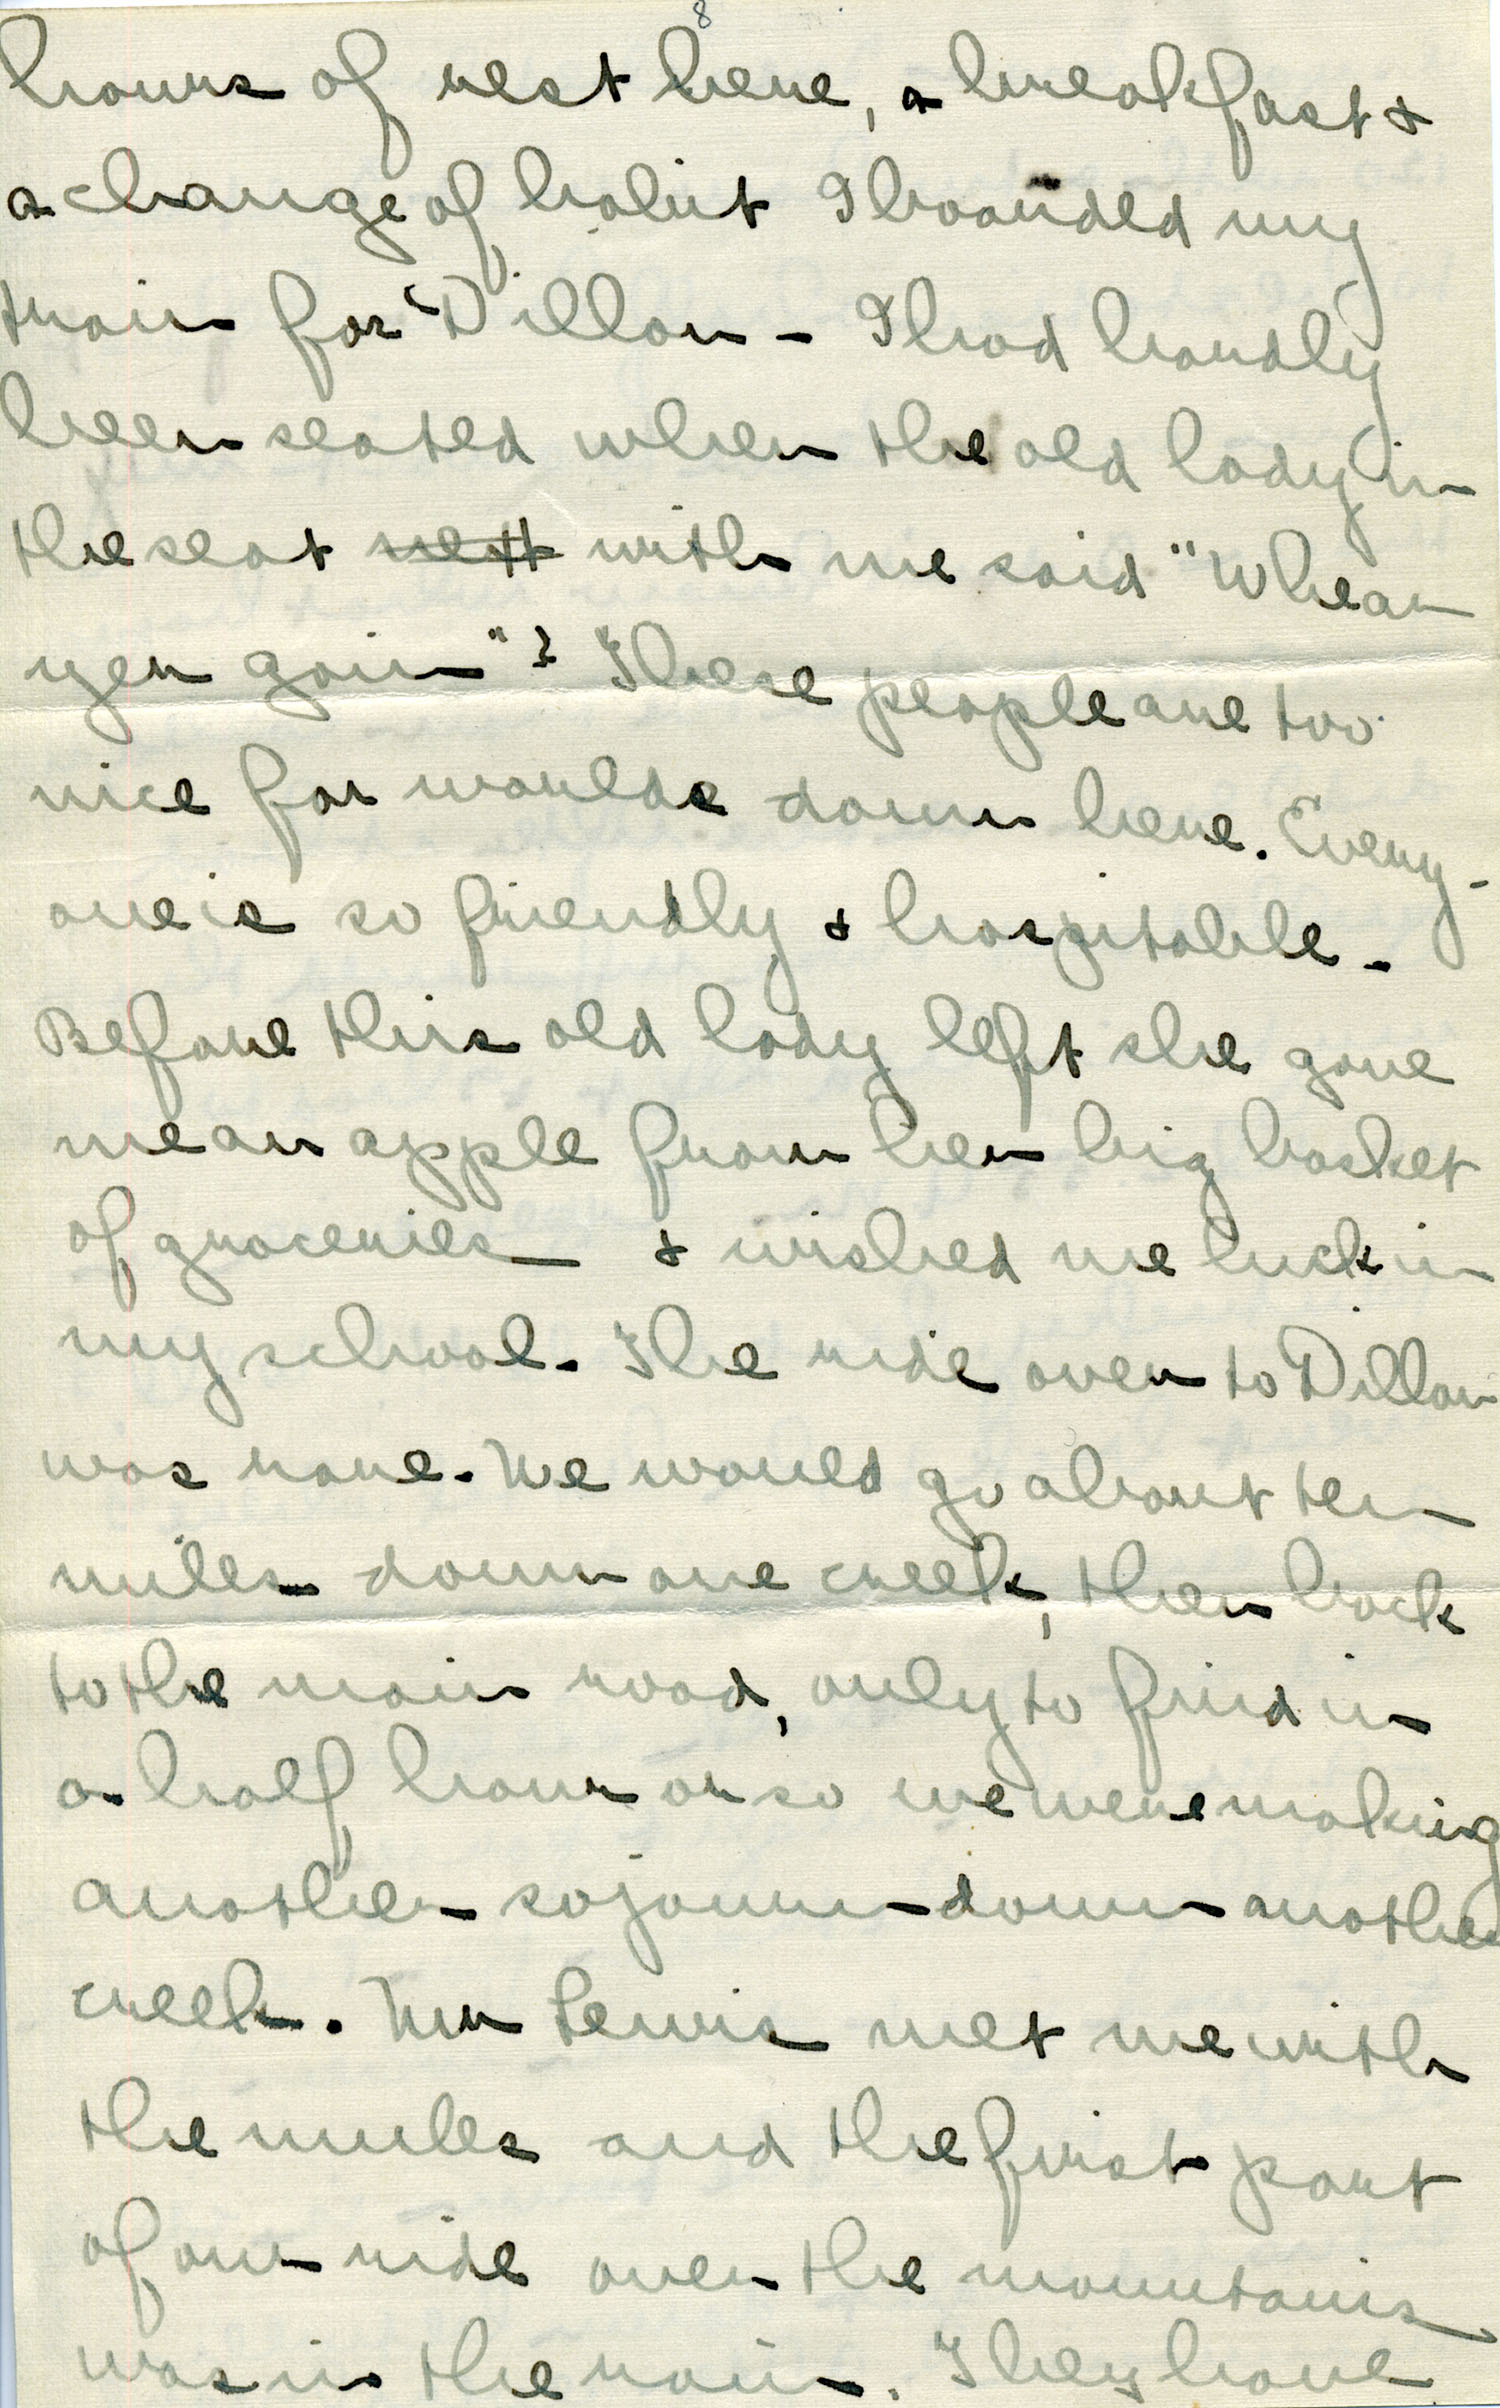 8
hours of rest here, a breakfast &
a change of habit I boarded my
train for Dillon - I had hardly
been seated when the old lady in
the seat next with me said "Whear
yer goin"? These people are too
nice for words down here. Every-
one is so friendly & hospitable -
Before this old lady left she gave
me an apple from her big basket
of groceries & wished me luck in
my school. The ride over to Dillon
was rare. We would go about ten
miles down one creek, then back
to the main road, only to find in
a half hour or so we were making
another sojourn down another
creek. Mr Lewis met me with
the mules and the first part
of our ride over the mountains
was in the rain. They have